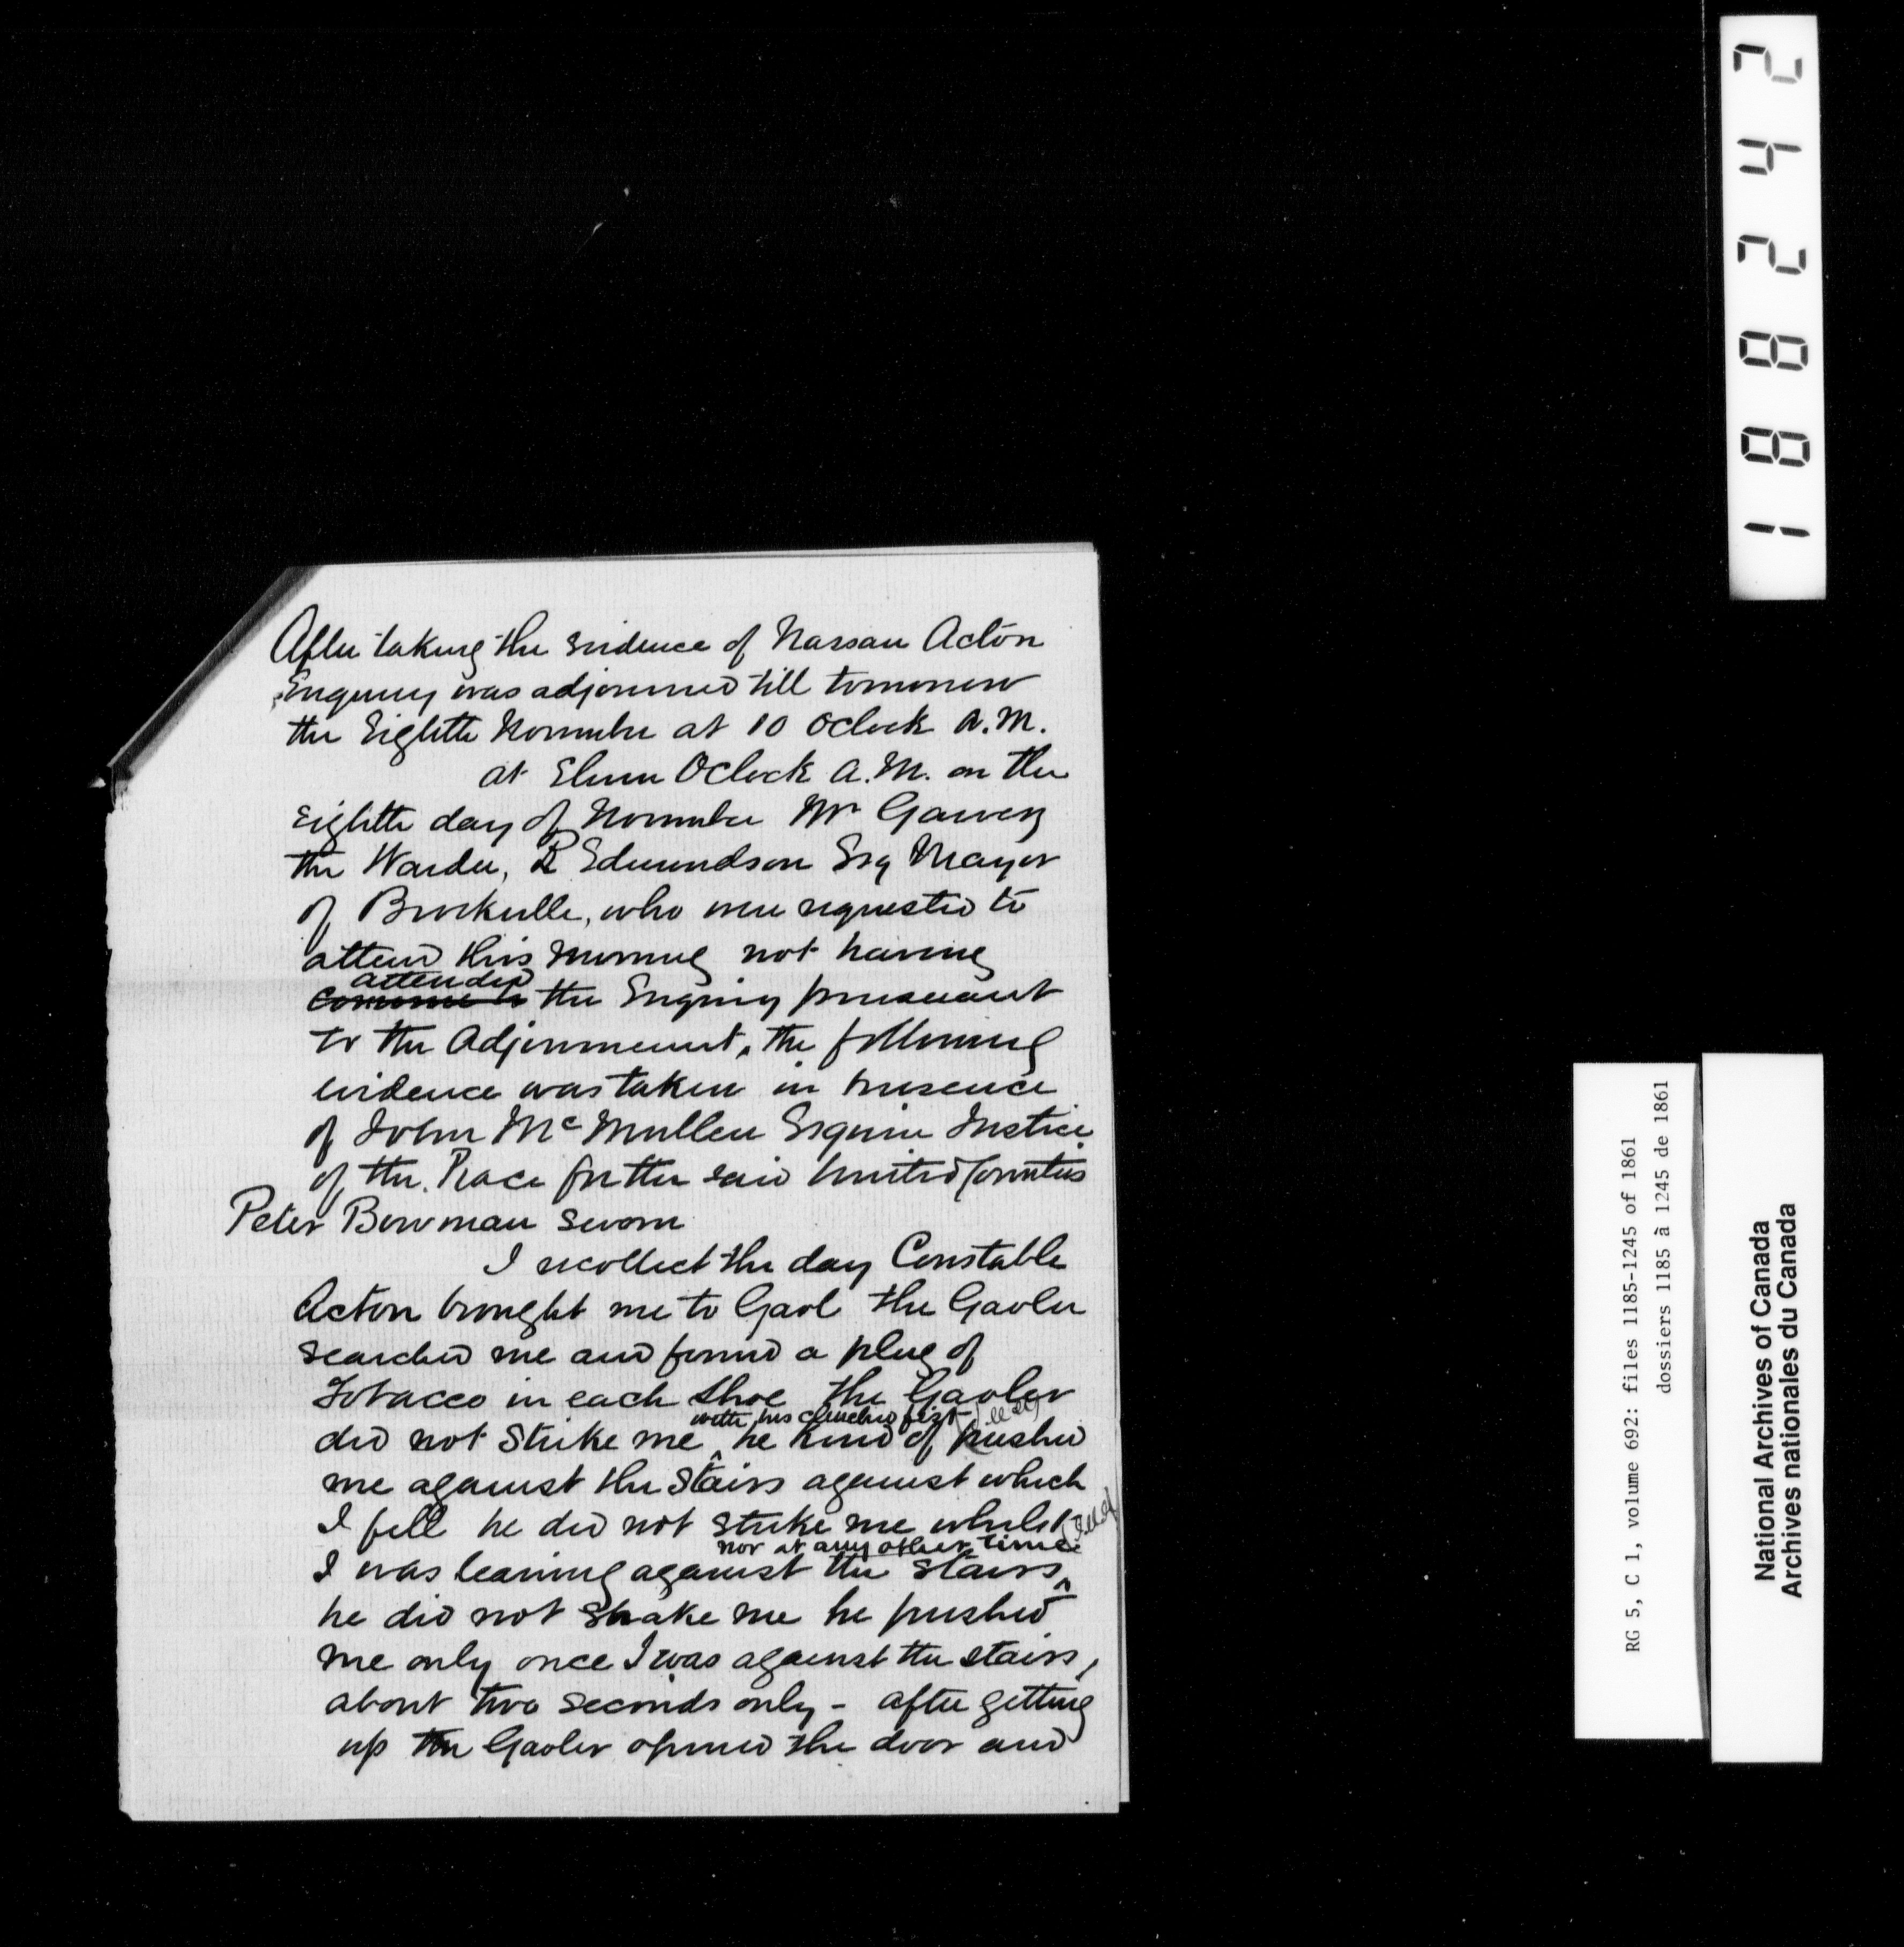 After taking the evidence of Nassau Acton
Enquiry was adjourned till tomorrow
the Eighth November at 10 Oclock A.M.
at Eleven Oclock A.M. on the
Eighth day of November Mr Garvey
the Warden, R Edmundson Esq Mayor
of Brockville, who were requested to
attend this morning not having
attended
the Enquiry pursuant
to the Adjournment, the following
evidence was taken in presence
of John McMullen Esquire Justice
of the Peace for the said United Counties
Peter Bowman sworn
I recollect the day Constable
Acton brought me to Gaol the Gaoler
searched me and found a plug of
Tobacco in each shoe the Gaoler
with his clenched fist
did not Strike me he kind of pushed
me against the Stairs against which
I fell he did not strike me whilst
nor at any other time
I was leaning against the stairs
he did not shake me he pushed
me only once I was against the stairs,
about two seconds only - after getting
up the Gaoler opened the door and
188242
RG 5, C 1, volume 692: files 1185-1245 of 1861
dossiers 1185 à 1245 de 1861
National Archives of Canada
Archives nationales du Canada